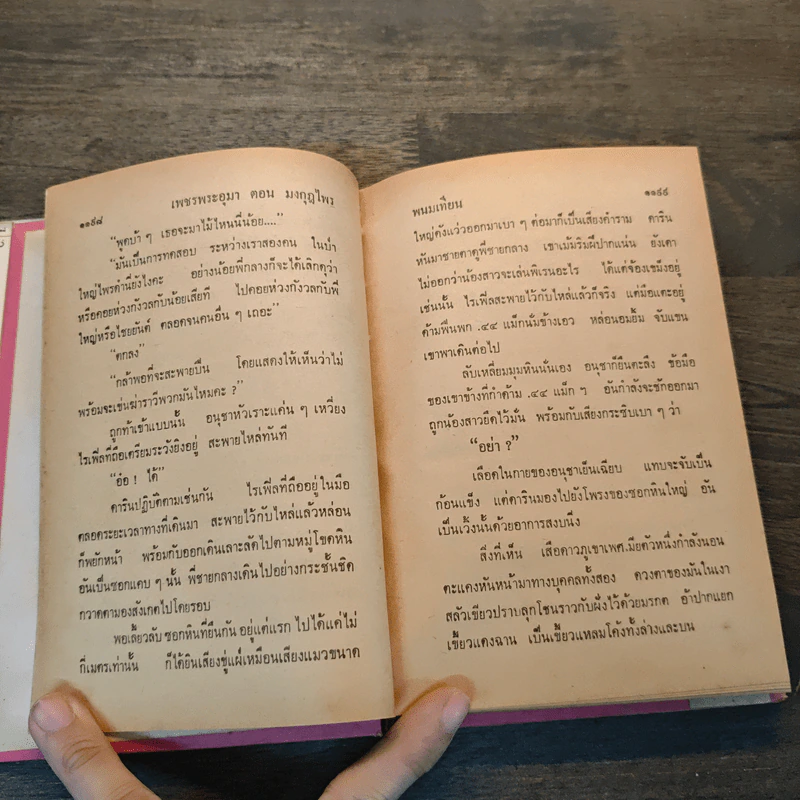 ๑๑๙๘
เพชรพระอุมา ตอน มงกุฎไพร
“พูดบ้า ๆ เธอจะมาไม้ไหนนี่น้อย....”
“มันเป็นการทดสอบ ระหว่างเราสองคน ในป่า
ใหญ่ไพรดำนี่ยังไงคะ อย่างน้อยพี่กลางก็จะได้เลิกดุว่า
หรือคอยห่วงกังวลกับน้อยเสียที ไปคอยห่วงกังวลกับพี่
ใหญ่หรือไชยยันต์ ตลอดจนคนอื่น ๆ เถอะ”
“ตกลง”
“กล้าพอที่จะสะพายปืน โดยแสดงให้เห็นว่าไม่
พร้อมจะเข่นฆ่าราวีพวกมันไหมคะ ?”
ถูกท้าเข้าแบบนั้น อนุชาหัวเราะแค่น ๆ เหวี่ยง
ไรเฟิ่ลที่ถือเตรียมระวังยิงอยู่ สะพายไหล่ทันที
“อ๋อ ! ได้”
ดารินปฏิบัติตามเช่นกัน ไรเฟิ่ลที่ถืออยู่ในมือ
ตลอดระยะเวลาทางที่เดินมา สะพายไว้กับไหล่แล้วหล่อน
ก็พยักหน้า พร้อมกับออกเดินเลาะลัดไปตามหมู่โขดหิน
อันเป็นซอกแคบ ๆ นั้น พี่ชายกลางเดินไปอย่างกระชั้นชิด
กวาดตามองสังเกตไปโดยรอบ
พอเลี้ยวลับ ซอกหินที่ยืนกัน อยู่แต่แรก ไปได้แค่ไม่
กี่เมตรเท่านั้น ก็ได้ยินเสียงขู่แผ่เหมือนเสียงแมวขนาด
๑๑๙๙
พนมเทียน
ใหญ่ดังแว่วออกมาเบา ๆ ต่อมาก็เป็นเสียงคำราม ดาริน
หันมาชายตาดูพี่ชายกลาง เขาเม้มริมฝีปากแน่น ยังเดา
ไม่ออกว่าน้องสาวจะเล่นพิเรนอะไร ได้แต่จ้องเขม็งอยู่
เช่นนั้น ไรเฟิ่ลสะพายไว้กับไหล่แล้วก็จริง แต่มือแตะอยู่
ด้ามพื่นพก .๔๔ แม็กนั่มข้างเอว หล่อนอมยิ้ม จับแขน
เขาพาเดินต่อไป
ลับเหลี่ยมมุมหินนั่นเอง อนุชาก็ยืนตะลึง ข้อมือ
ของเขาข้างที่กำด้าม .๔๔ แม็ก ฯ อันกำลังจะชักออกมา
ถูกน้องสาวยึดไว้มั่น พร้อมกับเสียงกระซิบเบา ๆ ว่า
“อย่า ?”
เลือดในกายของอนุชาเย็นเฉียบ แทบจะจับเป็น
ก้อนแข็ง แต่ดารินมองไปยังโพรงของซอกหินใหญ่ อัน
เป็นเวิ้งนั้นด้วยอาการสงบนิ่ง
สิ่งที่เห็น เสือดาวภูเขาเพศ.มียตัวหนึ่งกำลังนอน
ตะแคงหันหน้ามาทางบุคคลทั้งสอง ดวงตาของมันในเงา
สลัวเขียวปราบลุกโชนราวกับฝังไว้ด้วยมรกต อ้าปากแยก
เขี้ยวแดงฉาน เป็นเขี้ยวแหลมโค้งทั้งล่างและบน